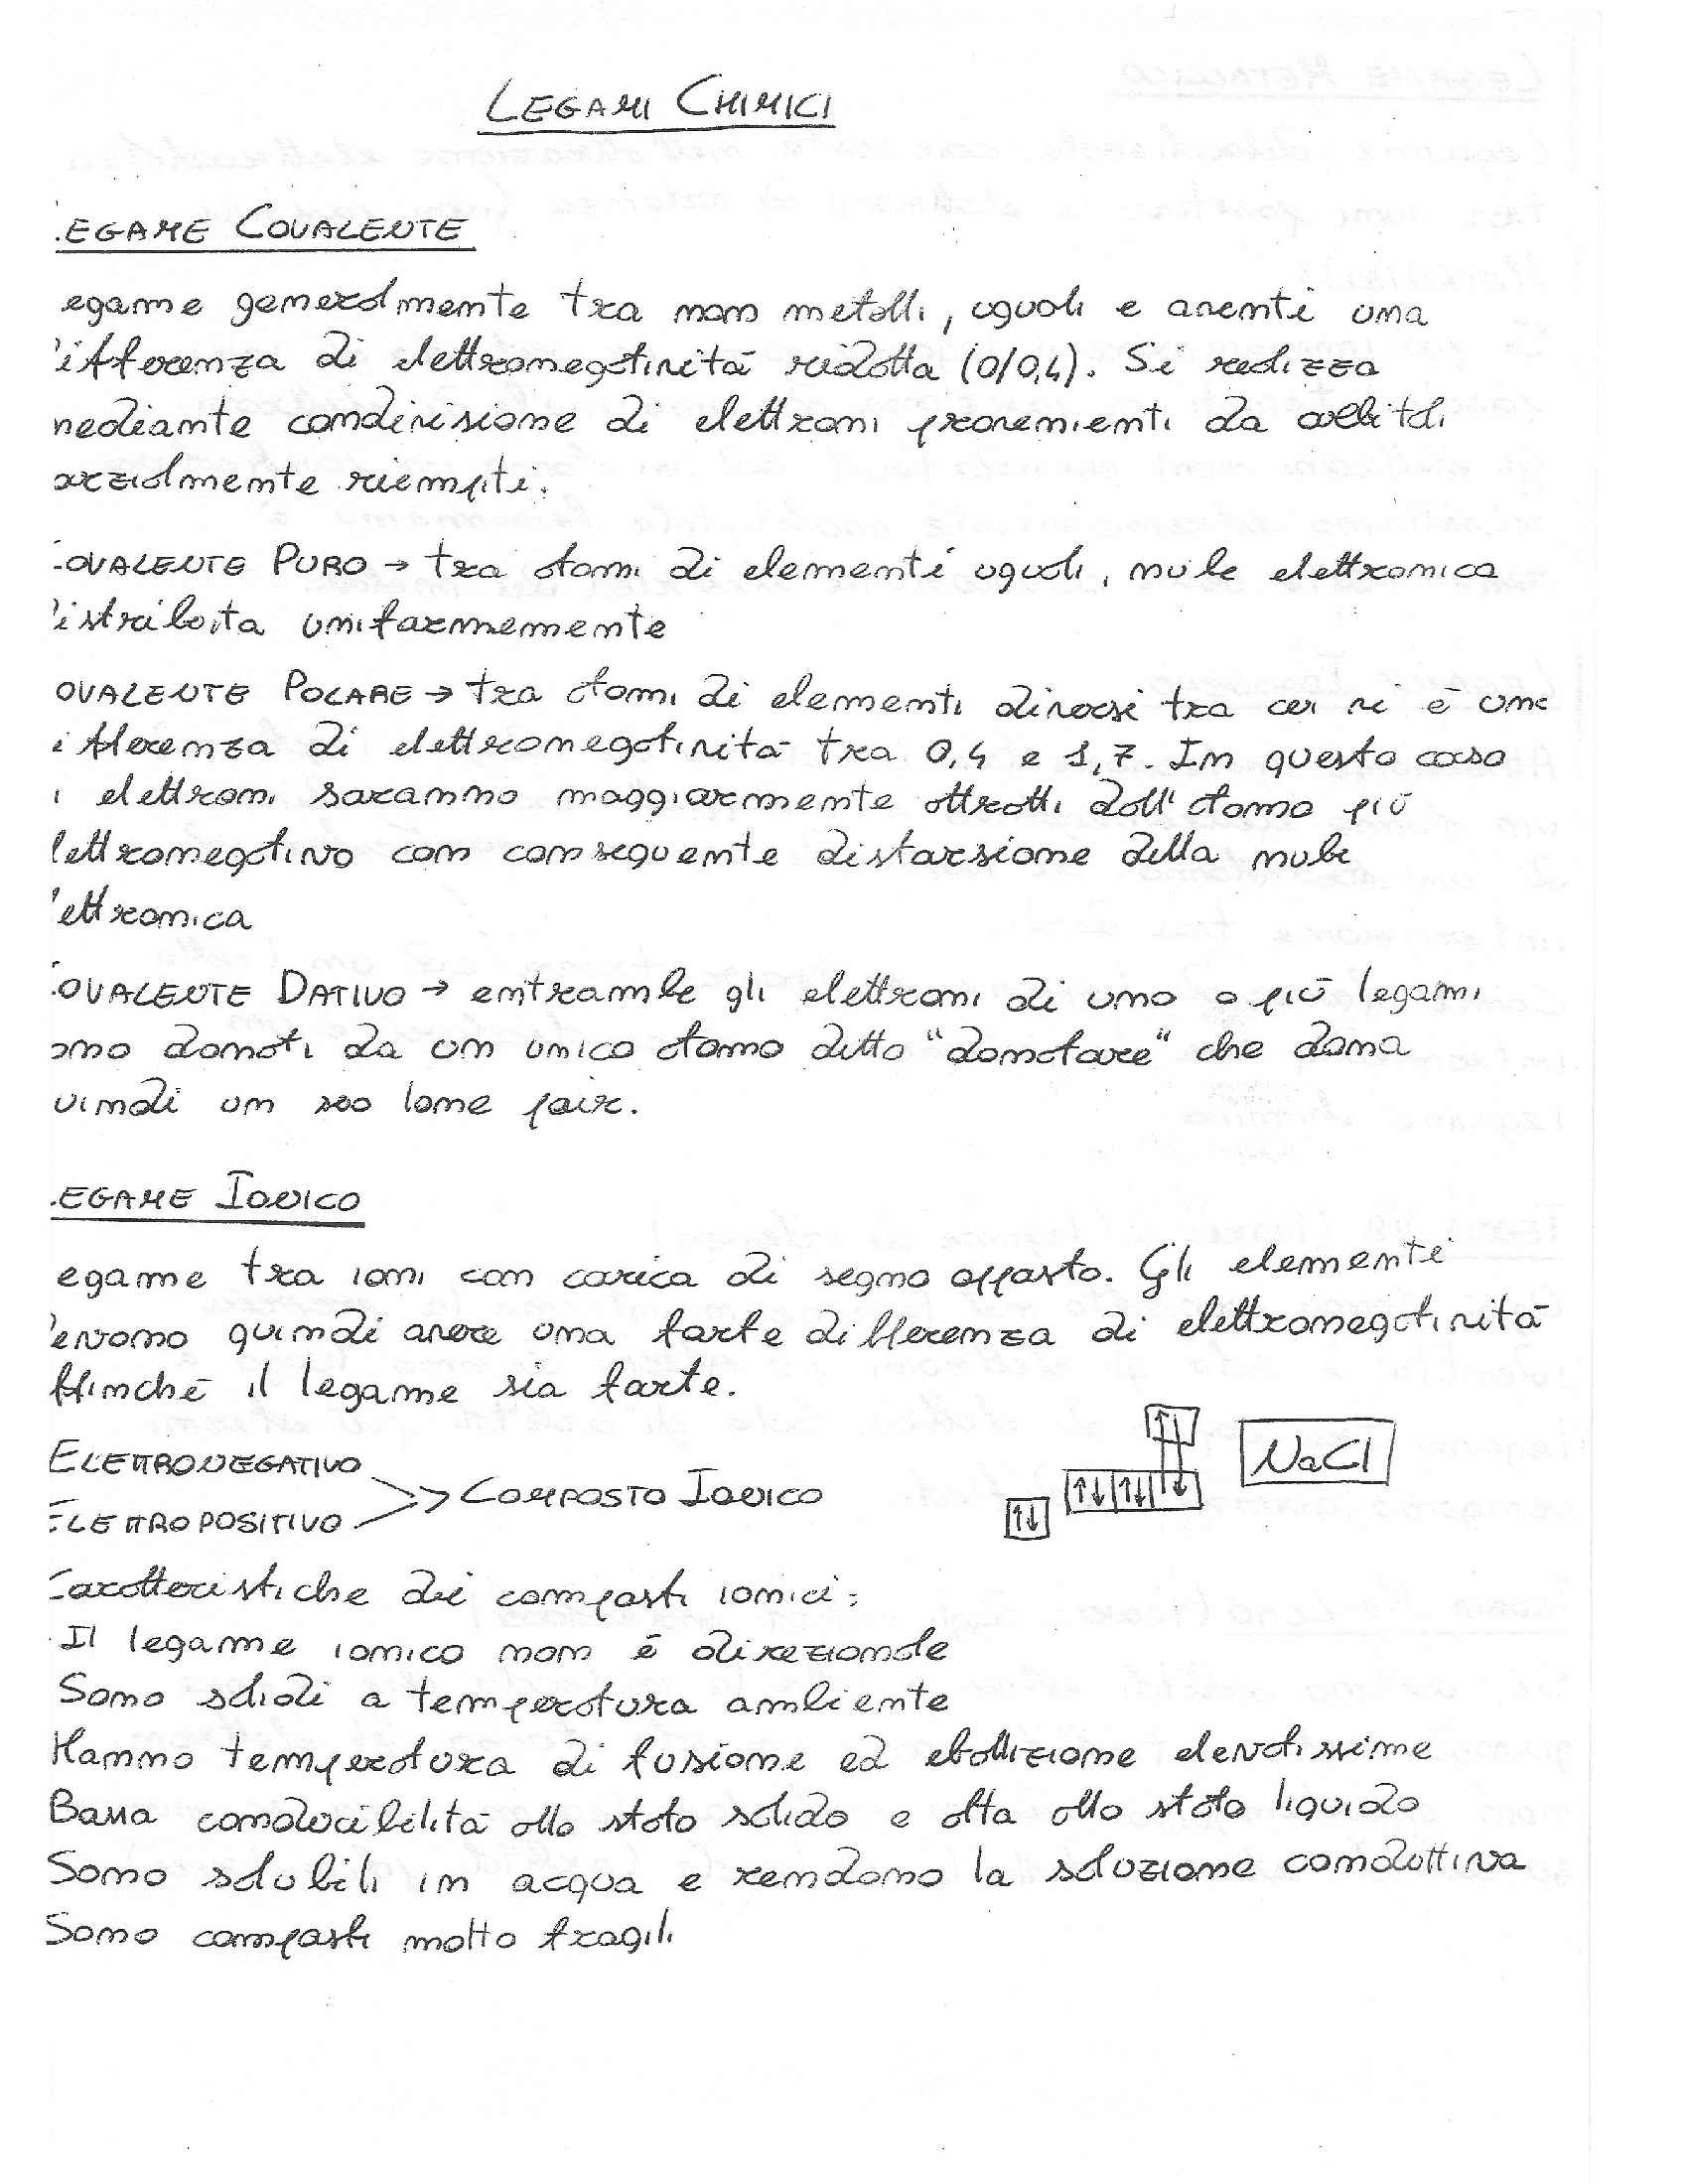 LEGAMI CHIMICI
LEGAME COVALENTE
legame generalmente tra non metalli, uguali e aventi una
differenza di elettronegatività ridotta (0/0,4). Si realizza
mediante condivisione di elettroni provenienti da orbitali
parzialmente riempiti.
COVALENTE PURO → tra atomi di elementi uguali, nube elettronica
distribuita uniformemente
COVALENTE POLARE → tra atomi di elementi diversi tra cui vi è una
differenza di elettronegatività tra 0,4 e 1,7. In questo caso
i elettroni saranno maggiormente attratti dall'atomo più
elettronegativo con conseguente distorsione della nube
elettronica
COVALENTE DATIVO → entrambe gli elettroni di uno o più legami
sono donati da un unico atomo detto "donatore" che dona
quindi un suo lone pair.
LEGAME IONICO
legame tra ioni con carica di segno opposto. Gli elementi
devono quindi avere una forte differenza di elettronegatività
affinché il legame sia forte.
ELETTRONEGATIVO
ELETTROPOSITIVO
> COMPOSTO IONICO
↑↓ ↑↓ ↑↓ ↑↓ ↑
NaCl
Caratteristiche dei composti ionici:
Il legame ionico non è direzionale
Sono solidi a temperatura ambiente
Hanno temperatura di fusione ed ebollizione elevatissime
Bassa conducibilità allo stato solido e alta allo stato liquido
Sono solubili in acqua e rendono la soluzione conduttiva
Sono composti molto fragili